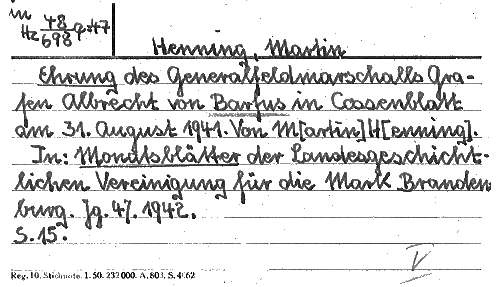 in
Hz 48/698 φ 47
Henning, Martin
Ehrung des Generalfeldmarschalls Gra-
fen Albrecht von Barfus in Cossenblatt
am 31. August 1941. Von M[artin] H[enning].
In: Monatsblätter der Landesgeschicht-
lichen Vereinigung für die Mark Branden-
burg. Jg. 47. 1942.
S. 15.
V
Reg. 10. Stichnote. 1. 50. 232000. A. 803. S. 4662